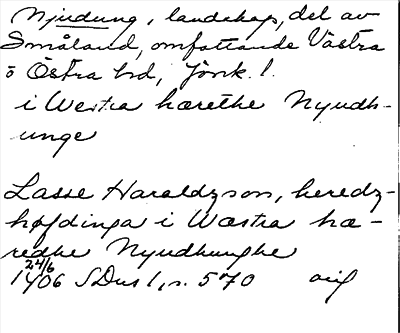 Njudung, landskap, del av
Småland, omfattande Västra
o Östra hd, Jönk. l.
i Westra hærethe Nyudh-
unge
Lasse Haraldzson, heredz-
høfdinga i Wæstra hæ-
redhe Nyudhunghe
24/6
1406 SDns 1, s. 570 orig